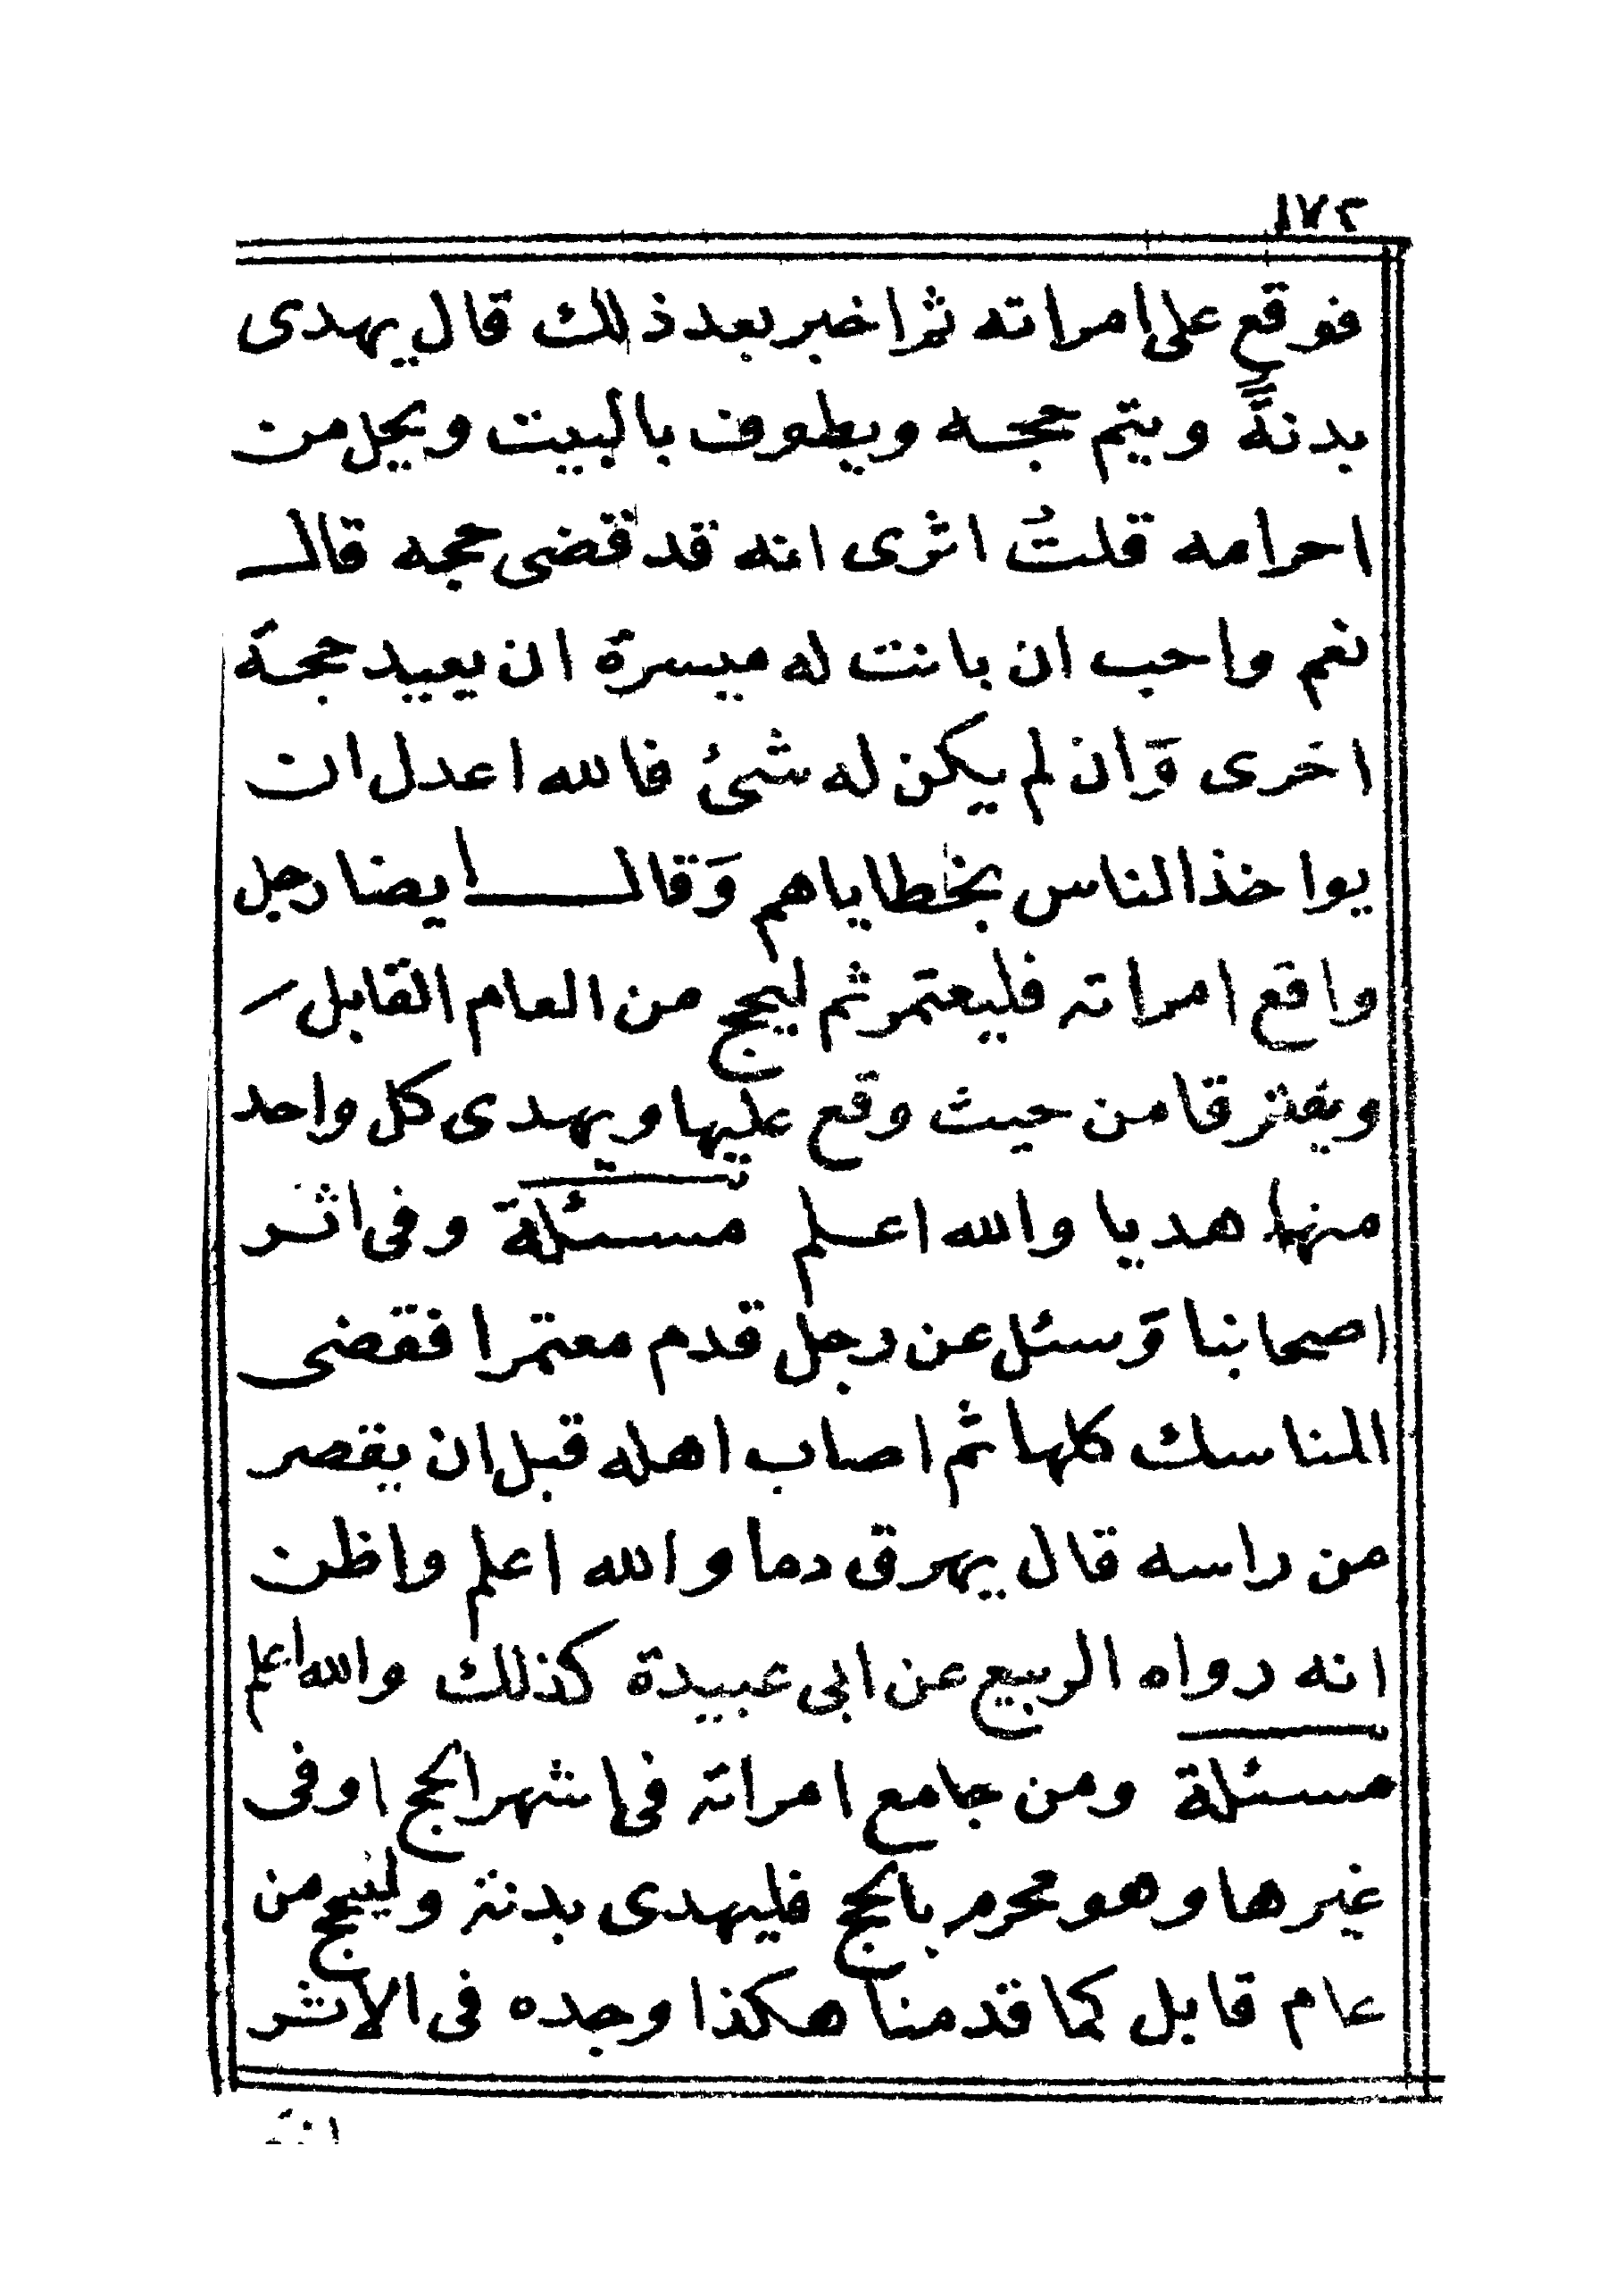 ١٧٢
فوقع على امراته ثم اخبر بعد ذلك قال يهدى
بدنةً ويتم حجه ويطوف بالبيت ويحل من
احرامه قلتُ اثرى انه قد قضى حجه قال
نعم واحب ان بانت له ميسرة ان يعيد حجة
اخرى وَان لم يكن له شئ فالله اعدل ان
يواخذ الناس بخطاياهم وَقال ايضا رجل
واقع امراته فليعتمر ثم ليحج من العام القابل
ويفترقا من حيث وقع عليها ويهدى كل واحد
منها هديا والله اعلم مسئلة وفى اثر
اصحابنا وَسئل عن رجل قدم معتمرا فقضى
المناسك كلها ثم اصاب اهله قبل ان يقصر
من راسه قال يهرق دما والله اعلم واظن
انه رواه الربيع عن ابى عبيدة كذلك والله اعلم
مسئلة ومن جامع امراته فى اشهر الحج اوفى
غيرها وهو محرم بالحج فليهدى بدنة وليحج من
عام قابل كما قدمنا هكذا وجده فى الاثر